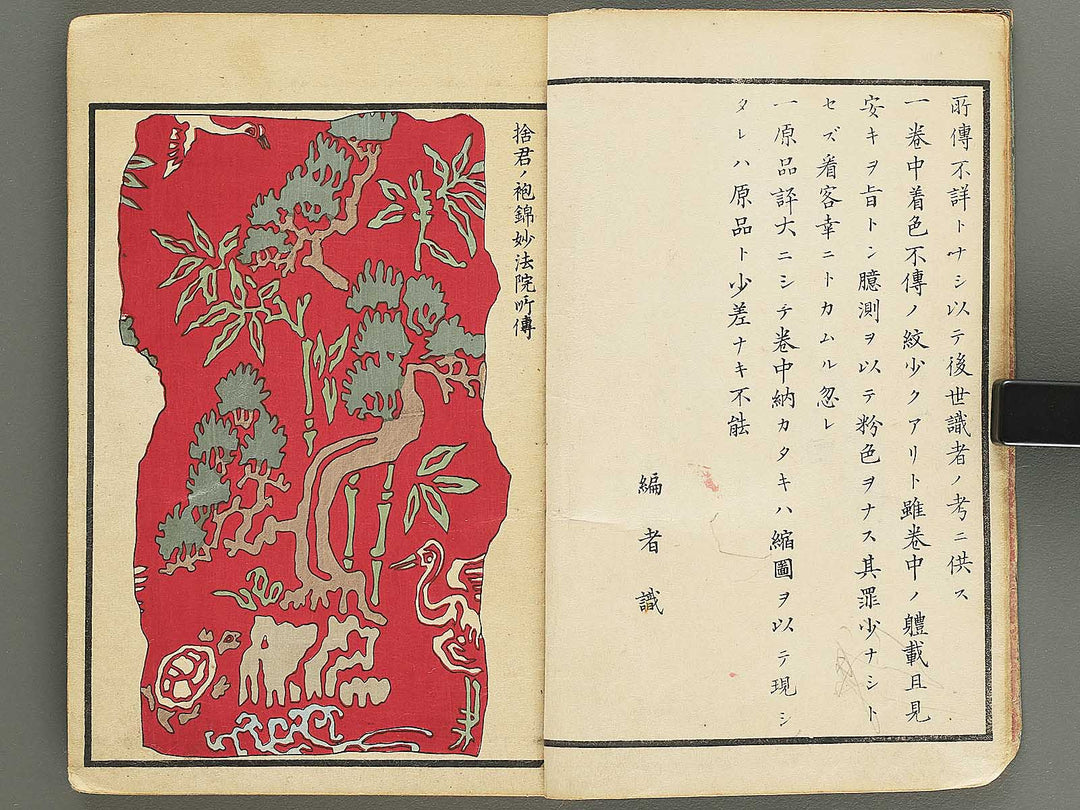 所傳不詳トナシ以テ後世識者ノ考ニ供ス
一卷中着色不傳ノ紋少クアリト雖卷中ノ軆載且見
安キヲ旨トシ臆測ヲ以テ粉色ヲナス其罪少ナシト
セズ看客幸ニトカムル忽レ
一原品評大ニシテ卷中納カタキハ縮圖ヲ以テ現シ
タレハ原品ト少差ナキ不能
編者識
捨君ノ袍錦妙法院所傳